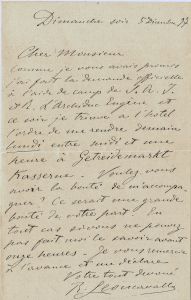 Dimanche soir 5 Décembre 97
Cher Monsieur
Comme je vous avais promis
j'ai fait la demande officielle
à l'aide de camp de S. A. I.
et R. l'Archiduc Eugène et
ce soir je trouve à l'hôtel
l'ordre de me rendre demain
lundi entre midi et une
heure à Getreidemarkt
Kasserne. Voulez vous
avoir la bonté de m'accompa-
gner? Ce serait une grande
bonté de votre part. En
tout cas envoyez me
pas fait moi le savoir avant
onze heures. Je vous remercie
à l'avance et me déclare
Votre tout dévoué
R. Leoncavallo